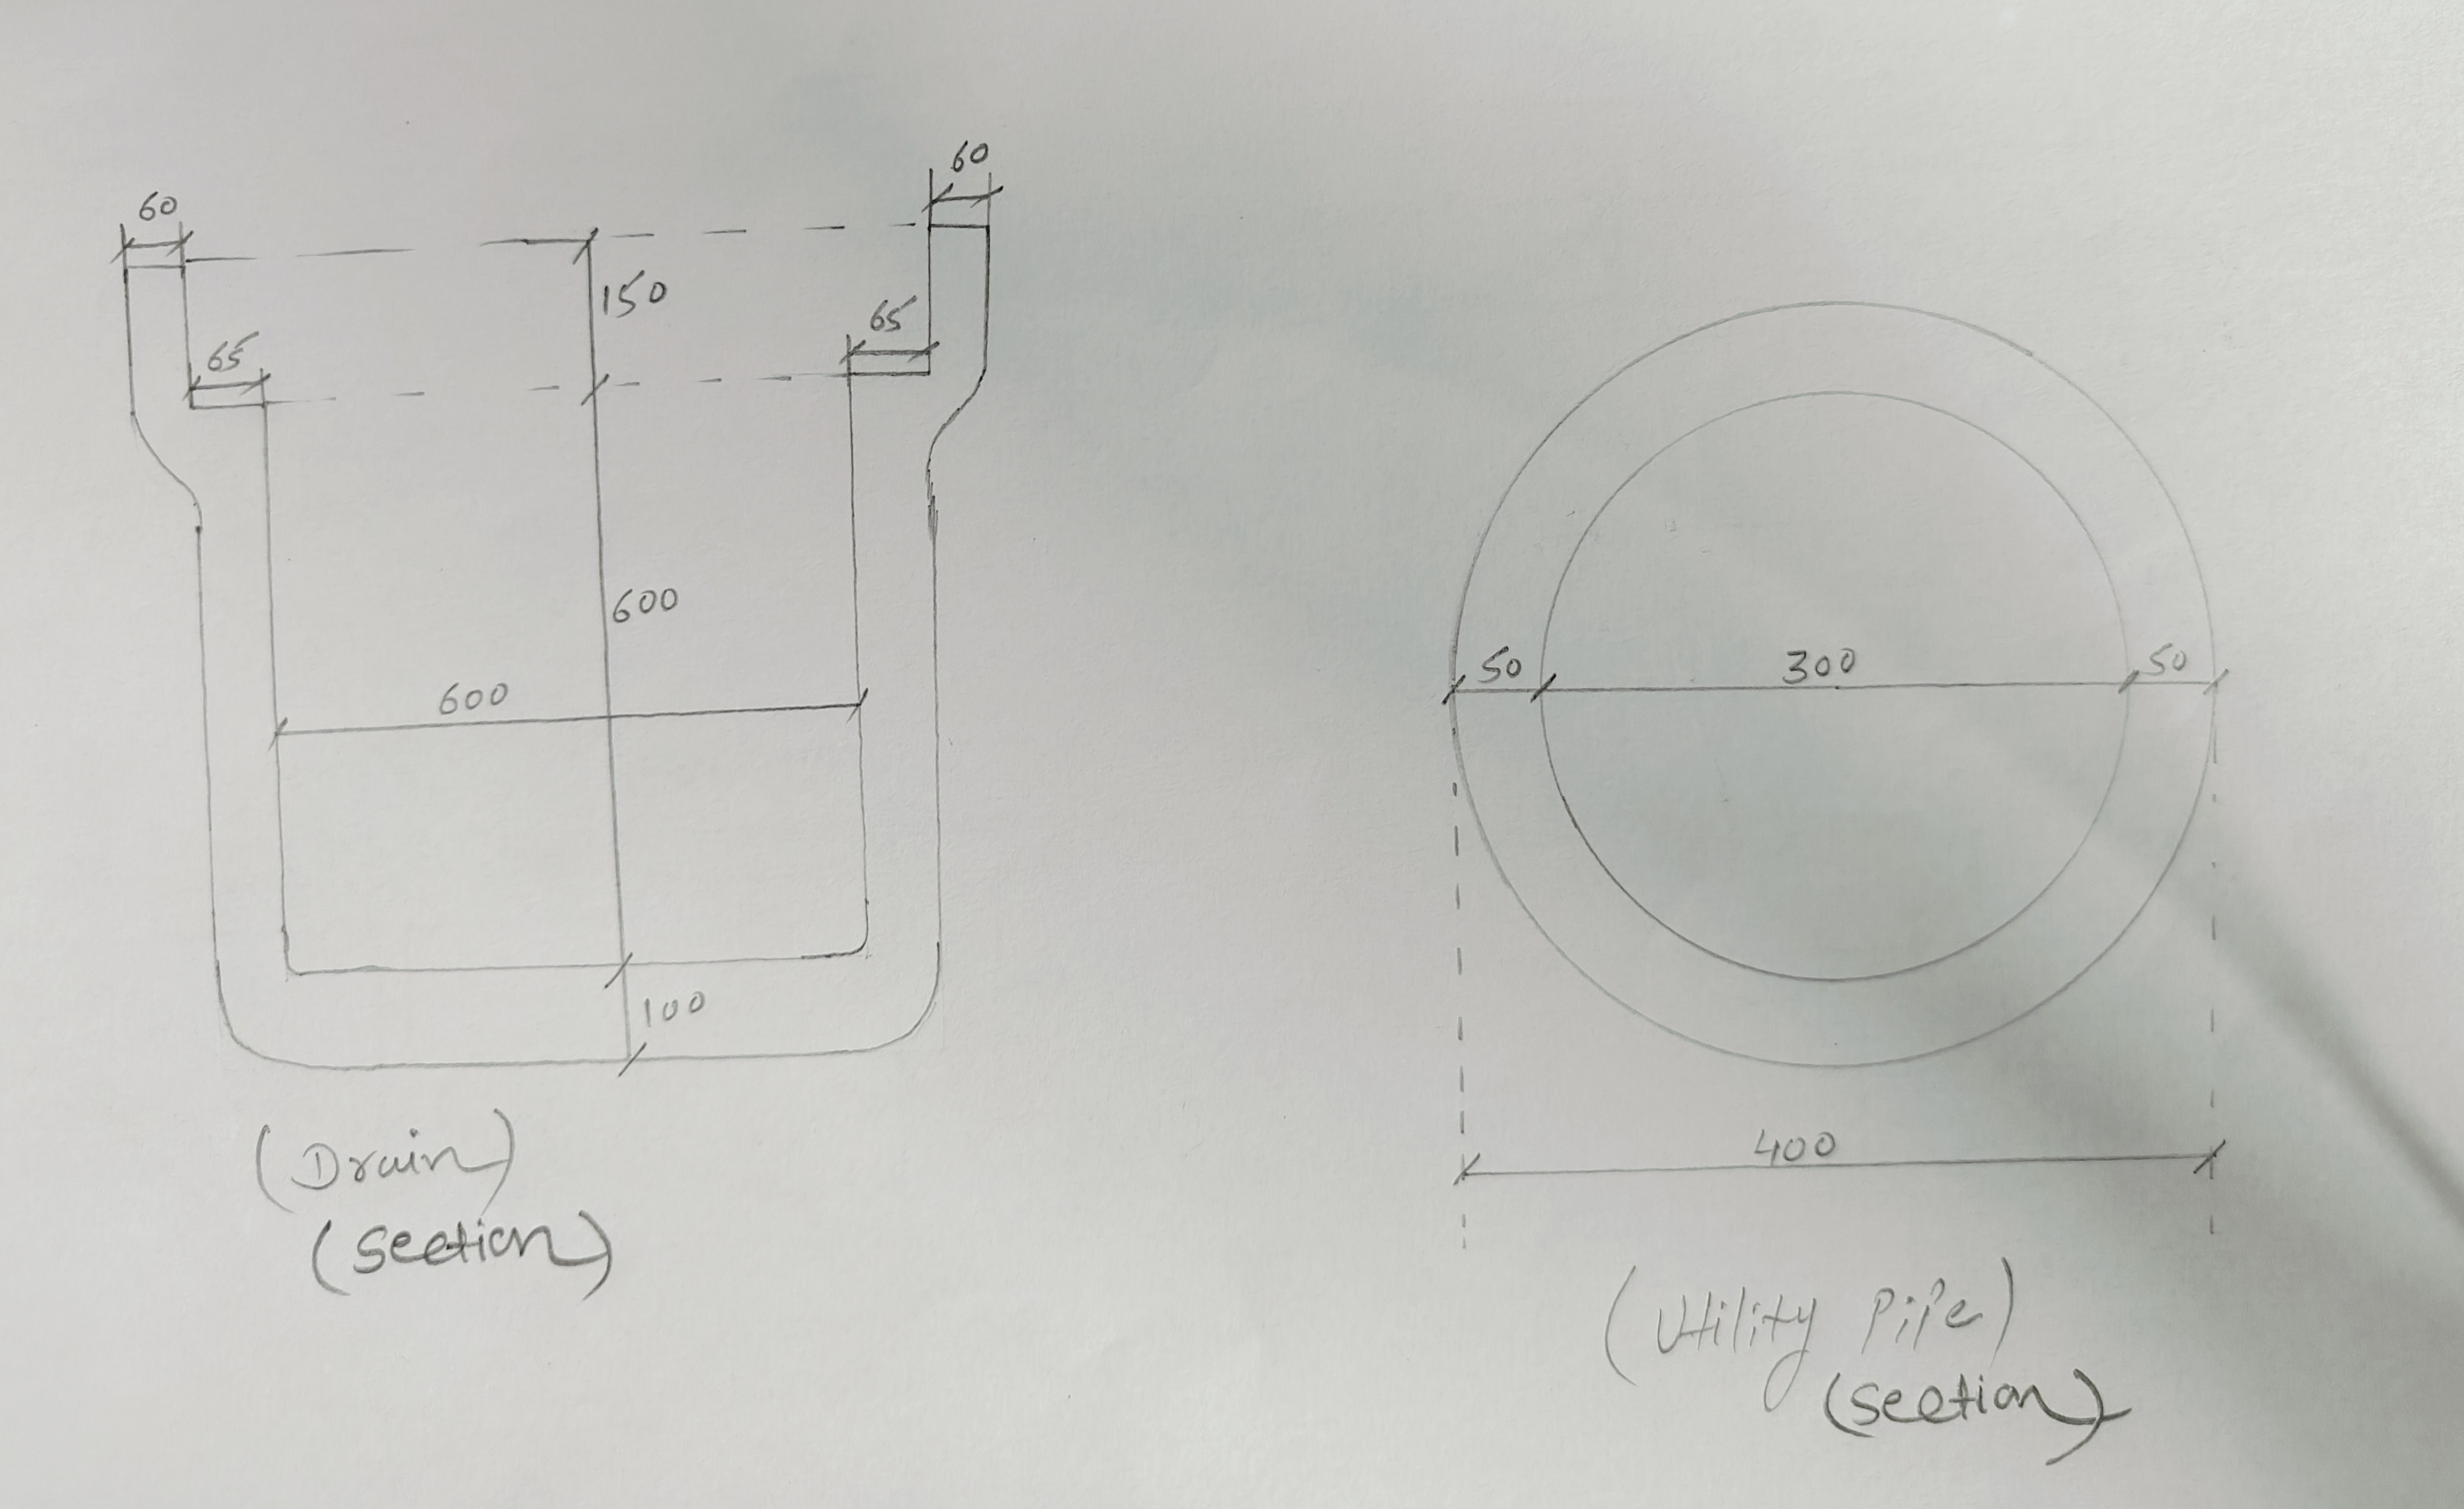 60
60
150
65
65
600
600
100
(Drain)
(section)
50 300 50
400
(Utility Pipe)
(section)